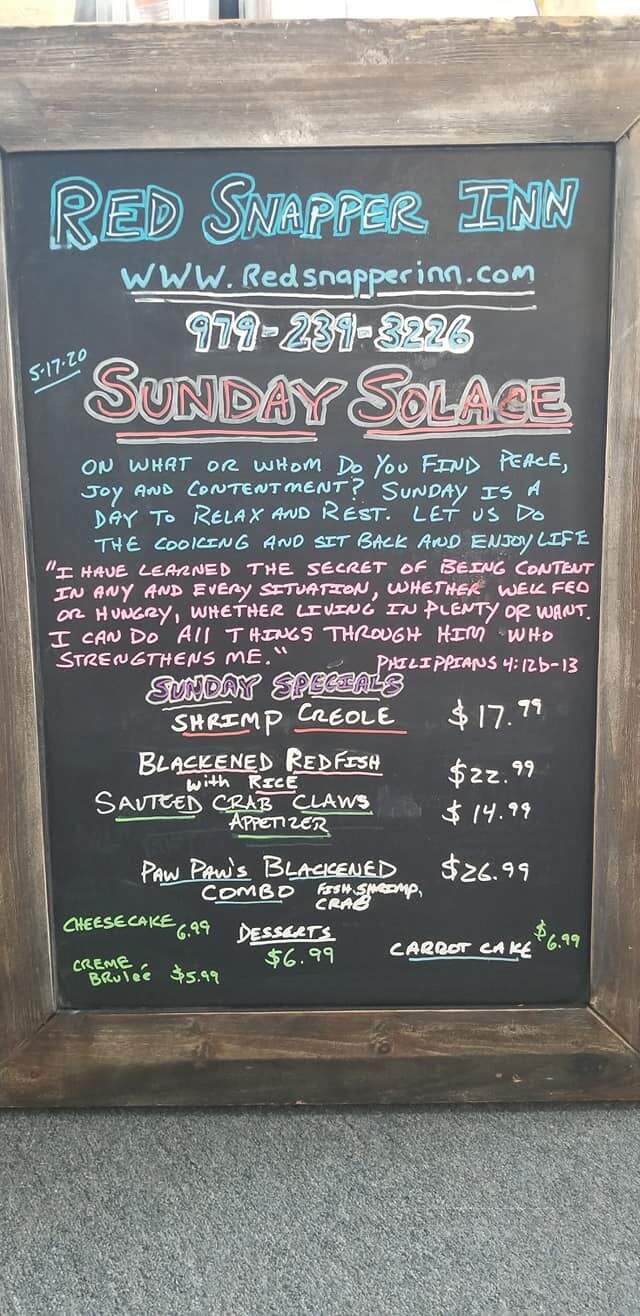 RED SNAPPER INN
WWW.Redsnapperinn.com
979-239-3226
5-17-20
SUNDAY SOLACE
ON WHAT OR WHOM DO YOU FIND PEACE,
JOY AND CONTENTMENT? SUNDAY IS A
DAY TO RELAX AND REST. LET US DO
THE COOKING AND SIT BACK AND ENJOY LIFE
"I HAVE LEARNED THE SECRET OF BEING CONTENT
IN ANY AND EVERY SITUATION, WHETHER WELL FED
OR HUNGRY, WHETHER LIVING IN PLENTY OR WANT.
I CAN DO All THINGS THROUGH HIM WHO
STRENGTHENS ME."
PHILIPPIANS 4:12b-13
SUNDAY SPECIALS
SHRIMP CREOLE $17.99
BLACKENED REDFISH $22.99
with RICE
SAUTEED CRAB CLAWS $14.99
APPETIZER
PAW PAW'S BLACKENED $26.99
COMBO FISH, SHRIMP,
CRAB
CHEESECAKE 6.99 DESSERTS CARROT CAKE $6.99
$6.99
CREME
BRuleé $5.99